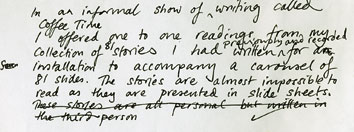 In an informal show of writing called
Coffee Time
I offered one to one readings from my
previously recorded
collection of 81 stories I had written for an
installation to accompany a carousel of
81 slides. The stories are almost impossible to
read as they are presented in slide sheets.
These stories are all personal but written in
the third person